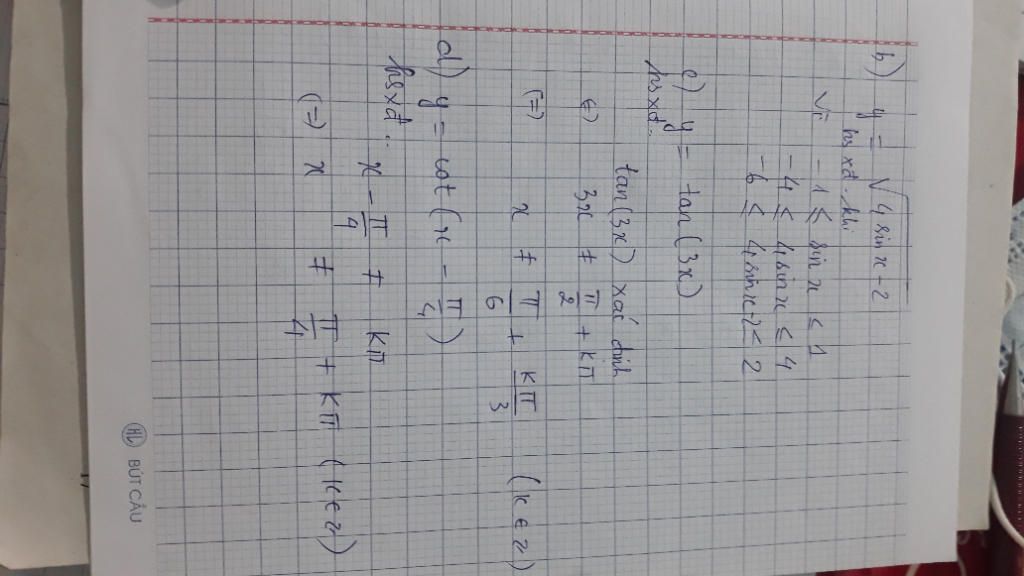 b) y = √(4 sin x - 2)
hsxđ khi
Vì -1 ≤ sin x ≤ 1
-4 ≤ 4 sin x ≤ 4
-6 ≤ 4 sin x - 2 ≤ 2
c) y = tan (3x)
hsxđ: tan (3x) xác định
(=) 3x ≠ π/2 + kπ
(=) x ≠ π/6 + kπ/3 (k ∈ Z)
d) y = cot (x - π/4)
hsxđ: x - π/4 ≠ kπ
(=) x ≠ π/4 + kπ (k ∈ Z)
HL BÚT CẦU